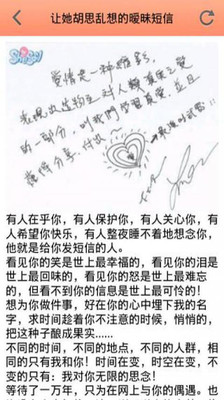 让她胡思乱想的暧昧短信
爱情是一种
的一部分
懂得分享、付出
有人在乎你，有人保护你，有人关心你，有
人希望你快乐，有人整夜睡不着地想念你，
他就是给你发短信的人。
看见你的笑是世上最幸福的，看见你的泪是
世上最回味的，看见你的怒是世上最难忘
的，但看不到你的信息是世上最可怜的！
想为你做件事，好在你的心中埋下我的名
字，求时间趁着你不注意的时候，悄悄的，
把这种子酿成果实......
不同的时间，不同的地点，不同的人群，相
同的只有我和你！时间在变，时空在变，不
变的只有：我对你无限的思念！
等待了一万年，只为在网上与你的偶遇。也